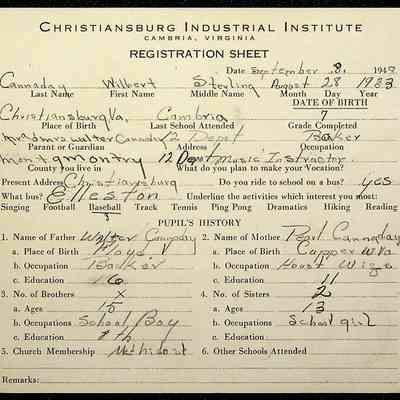 CHRISTIANSBURG INDUSTRIAL INSTITUTE
CAMBRIA, VIRGINIA
REGISTRATION SHEET
Date September 8, 1948
Cannaday Wilbert Sterling August 28 1933
Last Name First Name Middle Name Month Day Year
DATE OF BIRTH
Christiansburg Va, Cambria 7
Place of Birth Last School Attended Grade Completed
Mr and mrs walter Cannaday 12 Depot Baker
Parent or Guardian Address Occupation
montgomtry 12 Depot Music Instructor.
County you live in What do you plan to make your Vocation?
Present Address Christiansburg Do you ride to school on a bus? yes
What bus? Elleston Underline the activities which interest you most:
Singing Football Baseball Track Tennis Ping Pong Dramatics Hiking Reading
PUPIL'S HISTORY
1. Name of Father Walter Cannaday 2. Name of Mother Pearl Cannaday
a. Place of Birth a. Place of Birth
b. Occupation Baker b. Occupation House Wige
c. Education c. Education 11
3. No. of Brothers x 4. No. of Sisters 2
a. Ages 15 a. Ages 13
b. Occupations School Boy b. Occupations School girl
c. Education c. Education
5. Church Membership Methidoist 6. Other Schools Attended
Remarks: